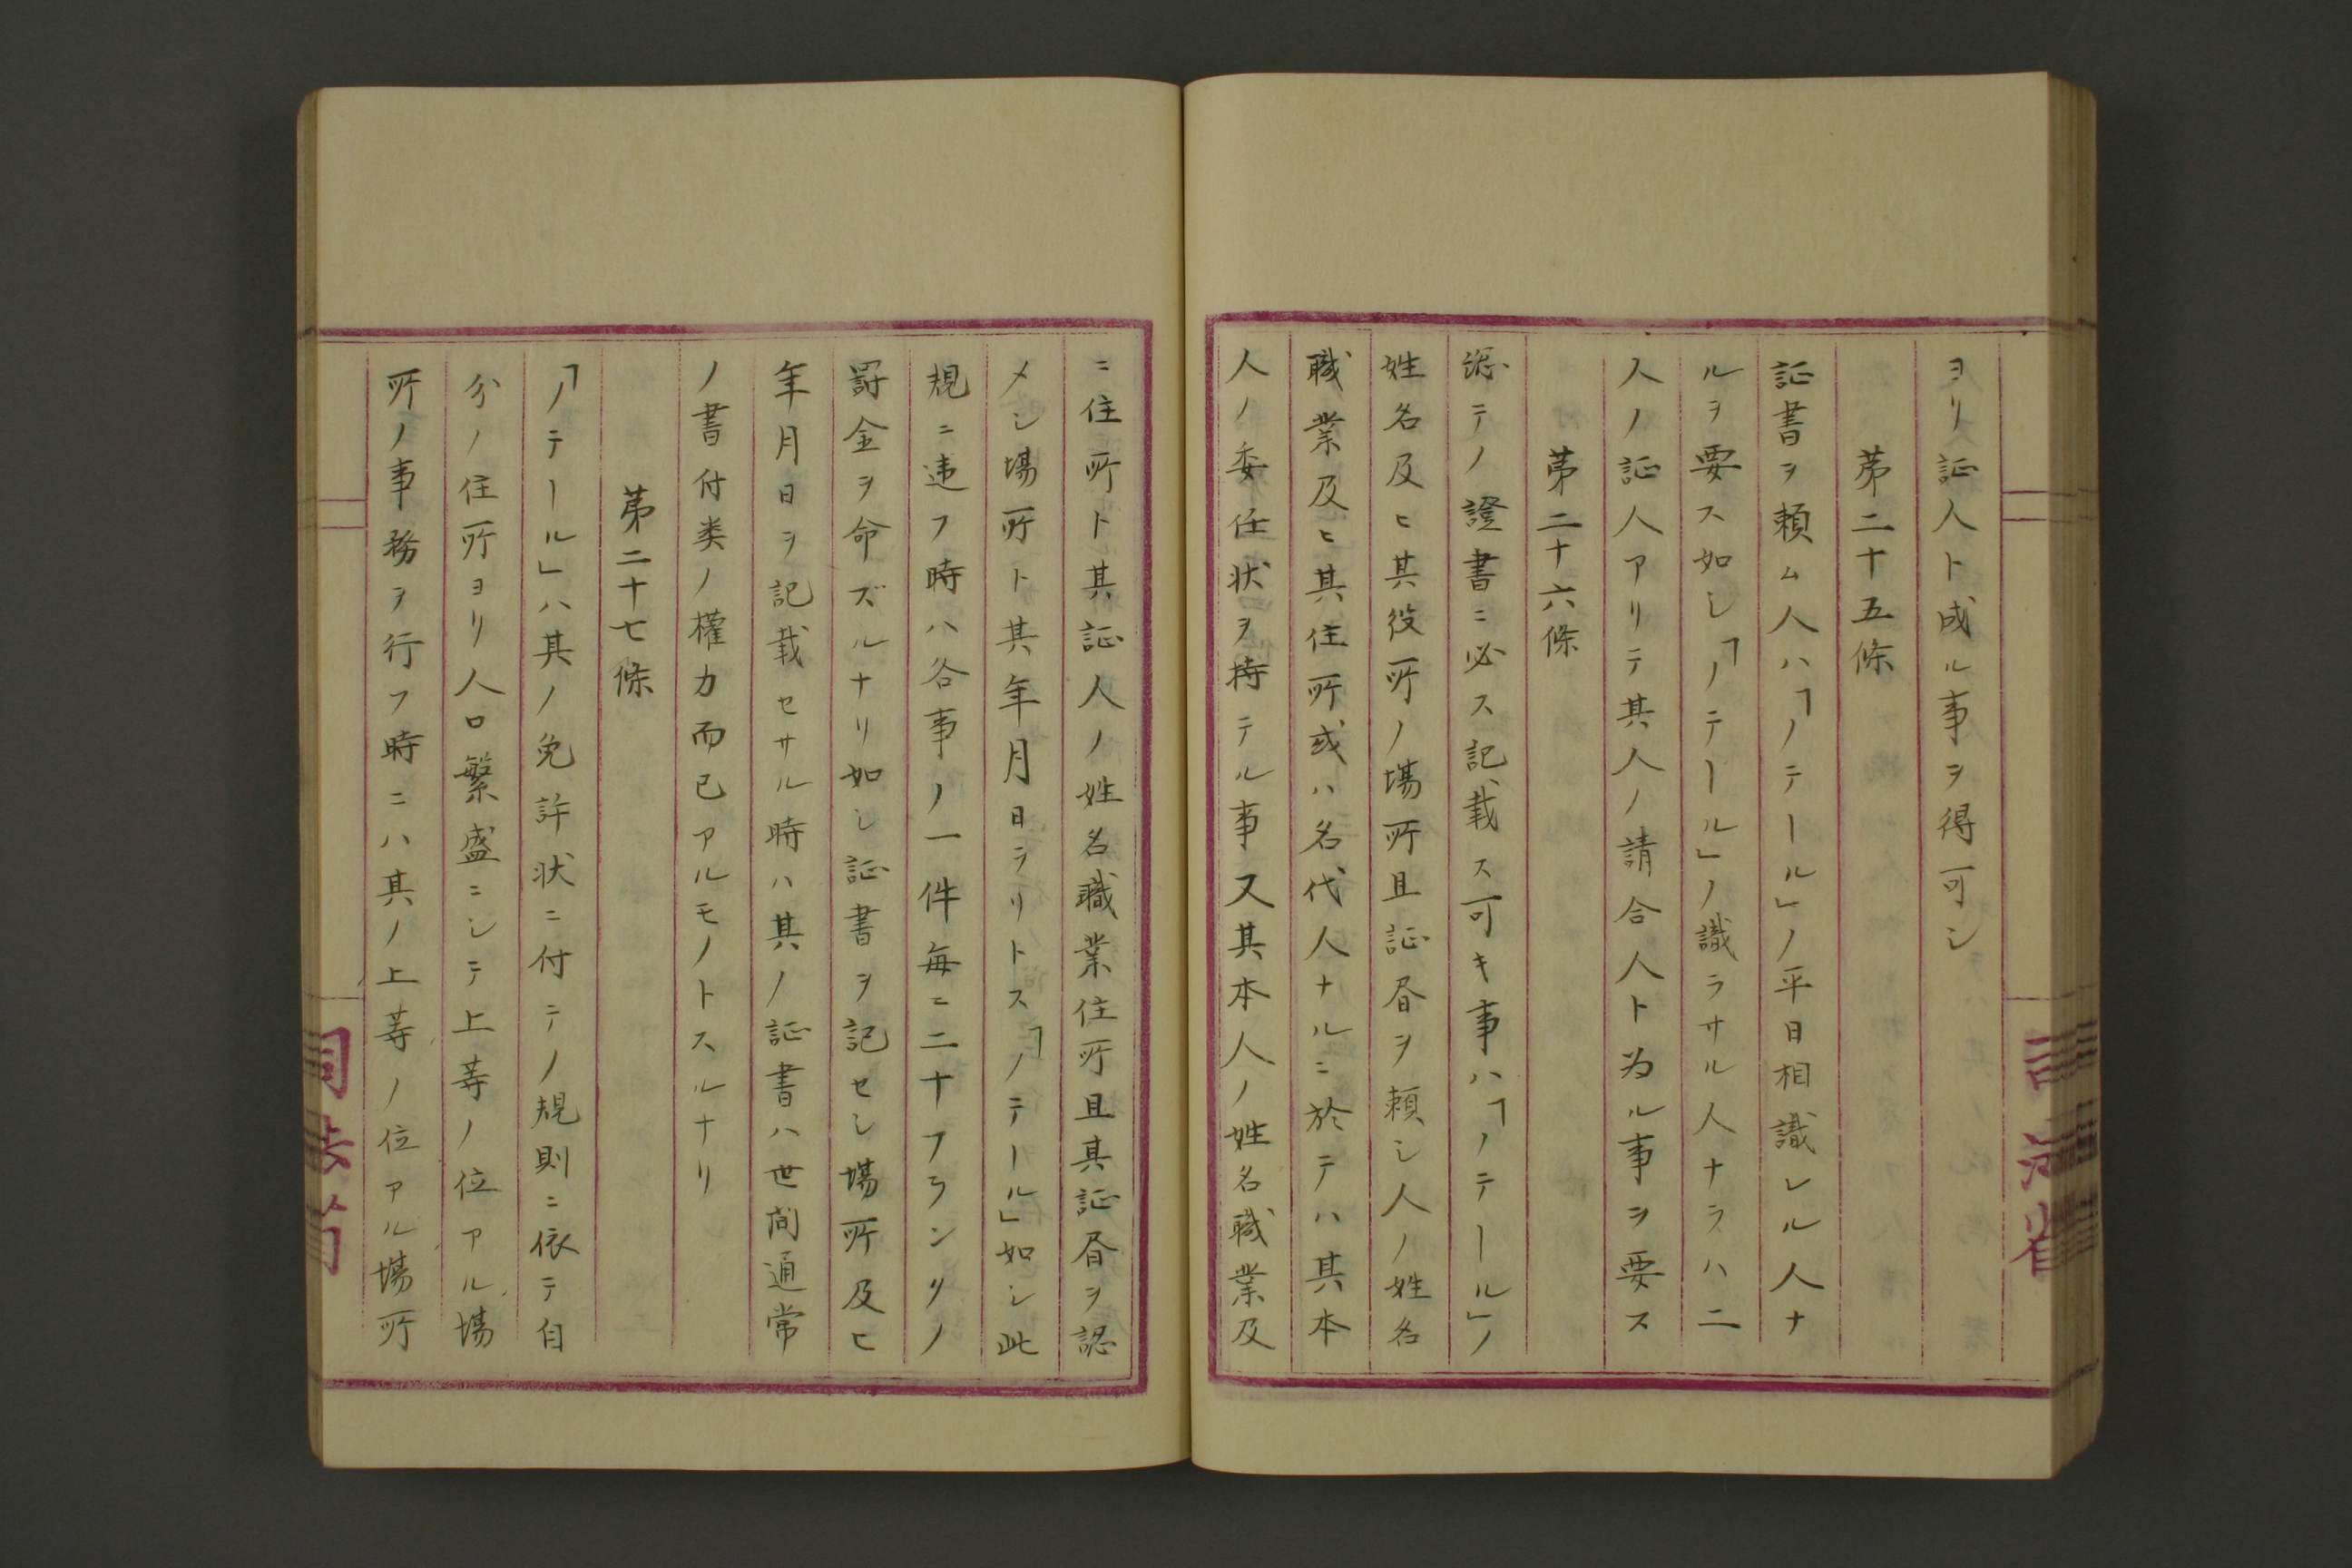 ヨリ証人ト成ル事ヲ得可シ
第二十五條
証書ヲ頼ム人ハ「ノテール」ノ平日相識レル人ナ
ルヲ要ス如シ「ノテール」ノ識ラサル人ナラハ二
人ノ証人アリテ其人ノ請合人ト為ル事ヲ要ス
第二十六條
総テノ證書ニ必ス記載ス可キ事ハ「ノテール」ノ
姓名及ヒ其役所ノ場所且証書ヲ頼シ人ノ姓名
職業及ヒ其住所或ハ名代人ナルニ於テハ其本
人ノ委任状ヲ持テル事又其本人ノ姓名職業及
ニ住所ト其証人ノ姓名職業住所且其証書ヲ認
メシ場所ト其年月日ヲリトス「ノテール」如シ此
規ニ違フ時ハ各事ノ一件毎ニ二十フランリノ
罰金ヲ命ズルナリ如シ証書ヲ記セシ場所及ヒ
年月日ヲ記載セサル時ハ其ノ証書ハ世間通常
ノ書付类ノ權力而已アルモノトスルナリ
第二十七條
「ノテール」ハ其ノ免許状ニ付テノ規則ニ依テ自
分ノ住所ヨリ人口繁盛ニシテ上等ノ位アル場
所ノ事務ヲ行フ時ニハ其ノ上等ノ位アル場所
司法省